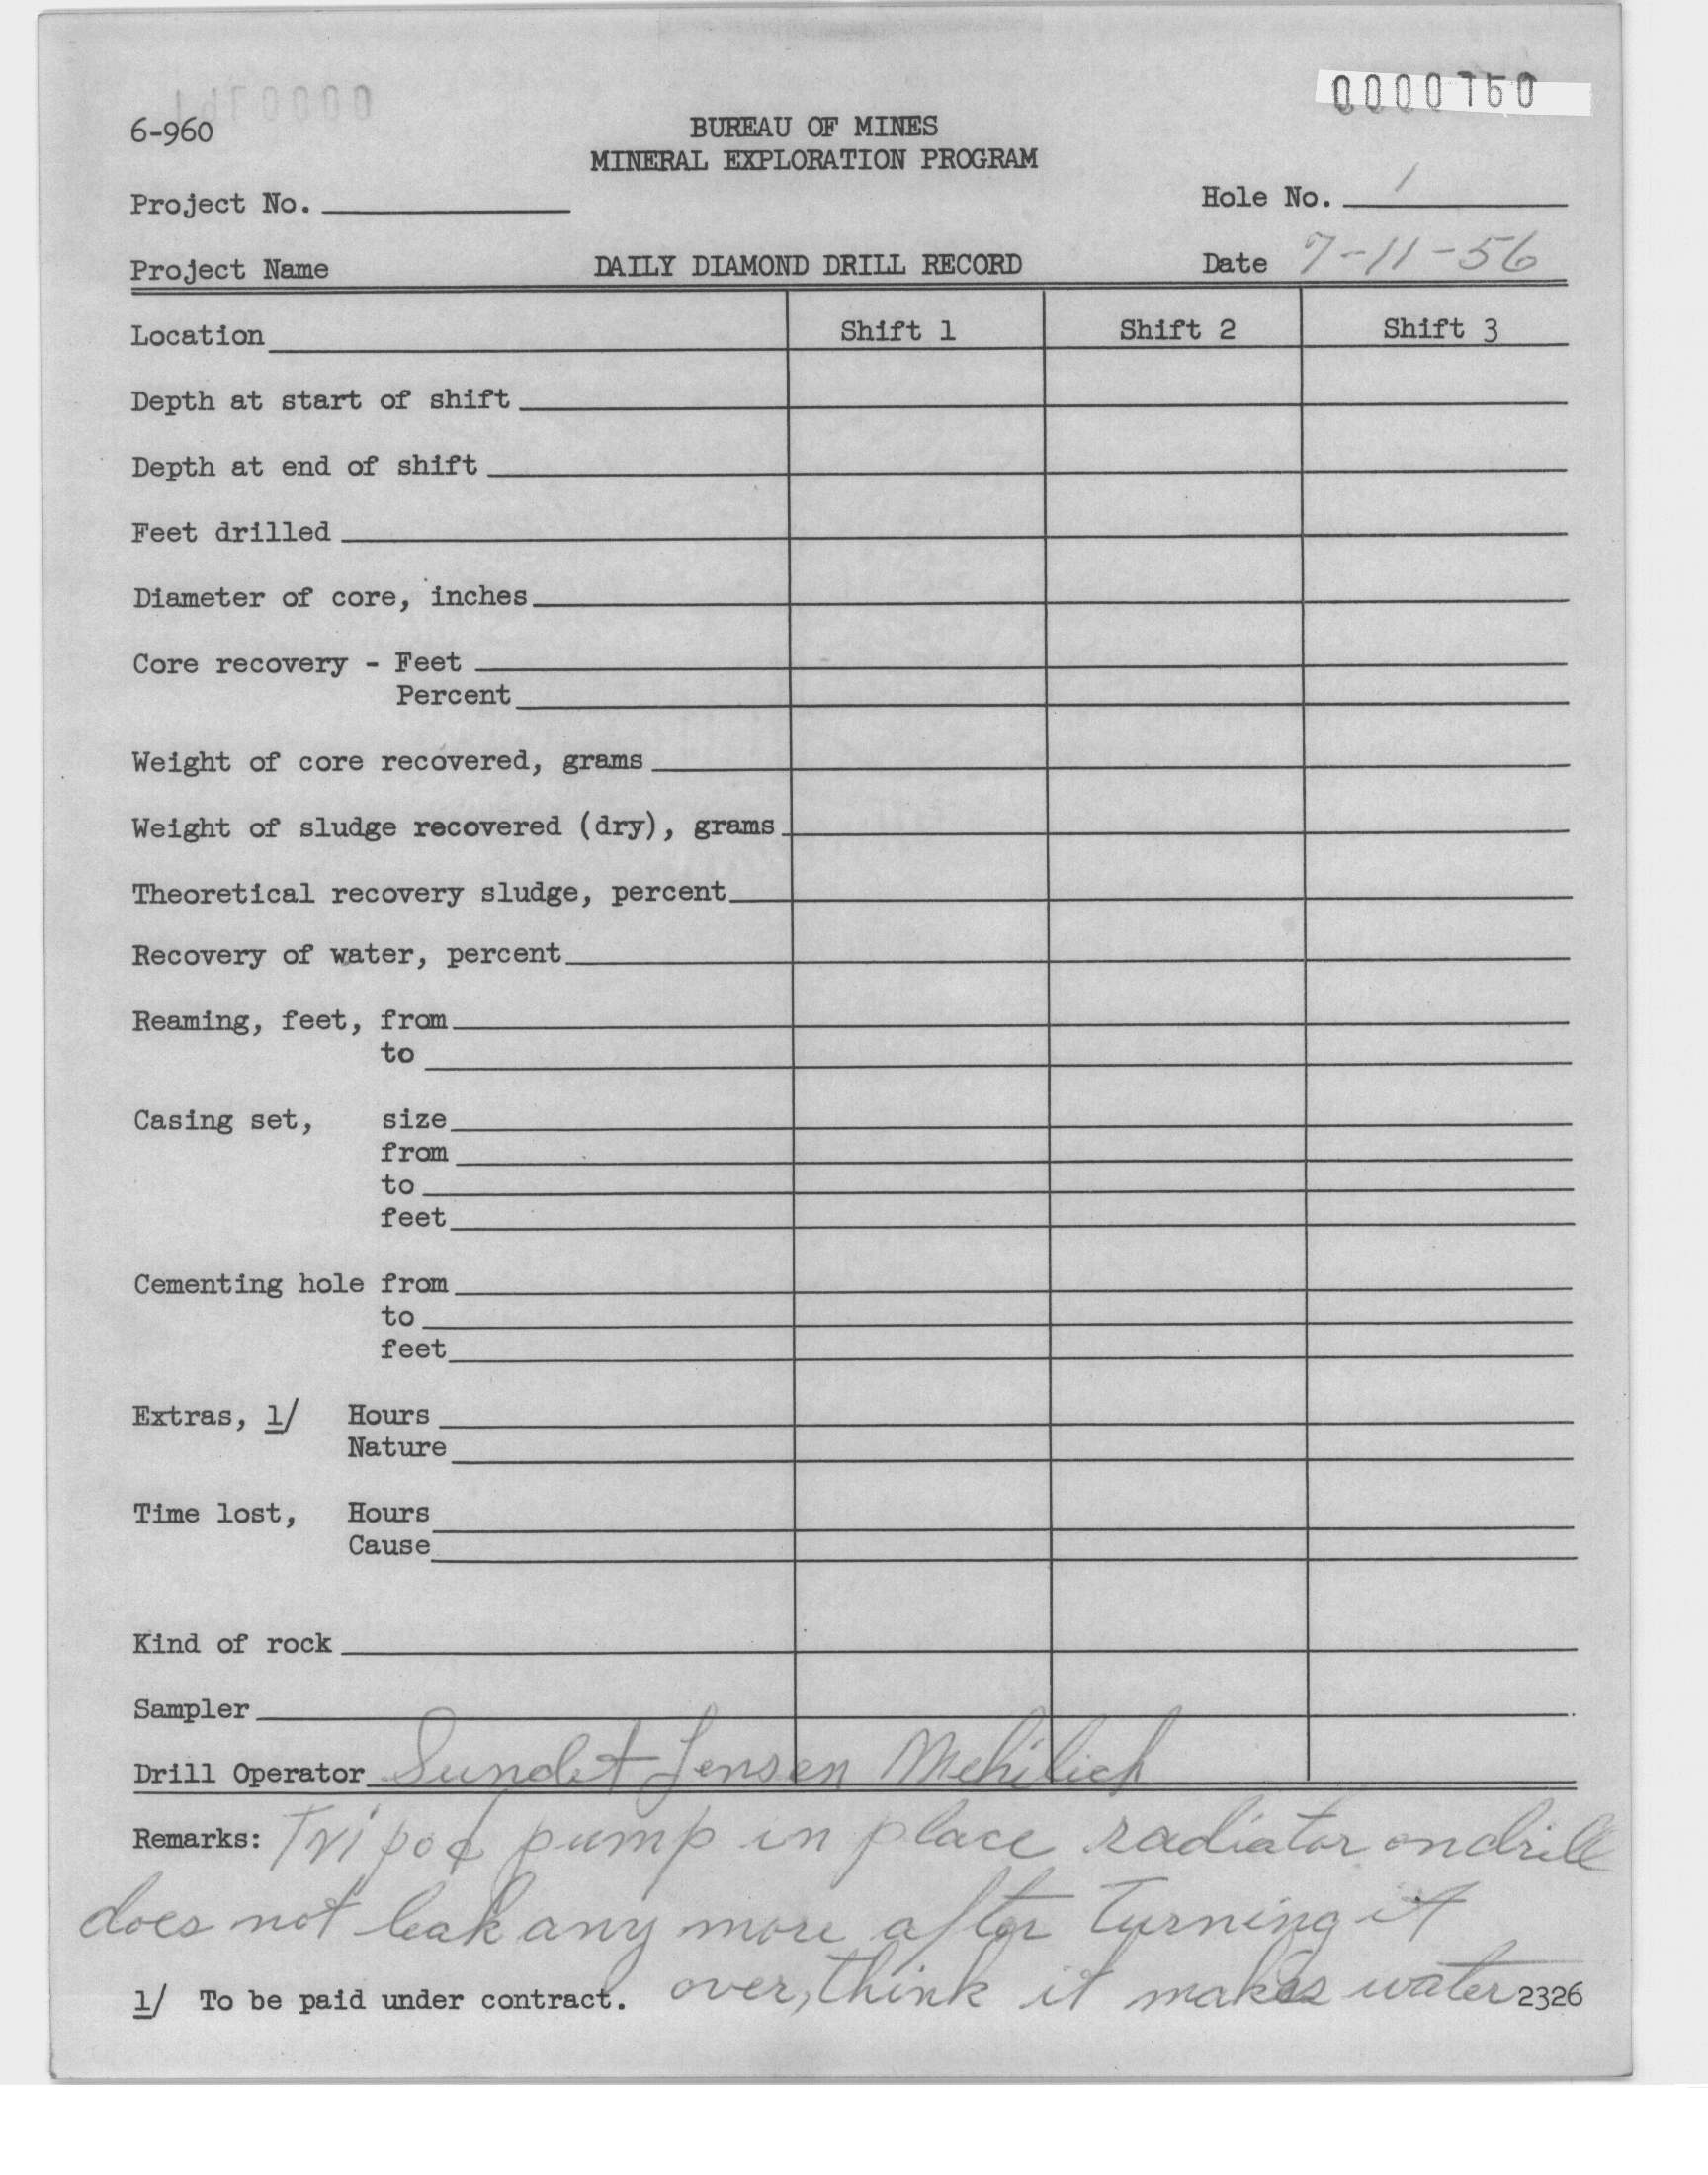 0000760
6-960
BUREAU OF MINES
MINERAL EXPLORATION PROGRAM
Project No.
Hole No. 1
Project Name
DAILY DIAMOND DRILL RECORD
Date 7-11-56
Location
Shift 1
Shift 2
Shift 3
Depth at start of shift
Depth at end of shift
Feet drilled
Diameter of core, inches
Core recovery - Feet
Percent
Weight of core recovered, grams
Weight of sludge recovered (dry), grams
Theoretical recovery sludge, percent
Recovery of water, percent
Reaming, feet, from
to
Casing set, size
from
to
feet
Cementing hole from
to
feet
Extras, 1/ Hours
Nature
Time lost, Hours
Cause
Kind of rock
Sampler
Drill Operator Sundet Jensen
Remarks: Tripod pump in place radiator on drill
does not leak any more after turning it
over, think it makes water
1/ To be paid under contract.
2326